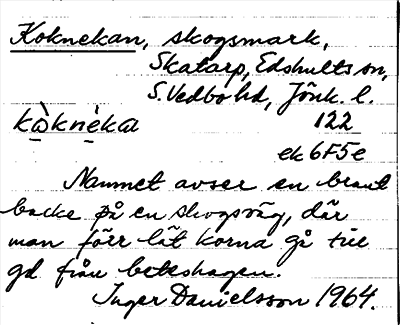 Koknekan, skogsmark,
Skatarp, Edshults sn,
S. Vedbo hd, Jönk. l.
kὼknèka 122
ek 6F5e
Namnet avser en brant
backe på en skogsväg, där
man förr lät korna gå till
gd. från beteshagen.
Inger Danielsson 1964.